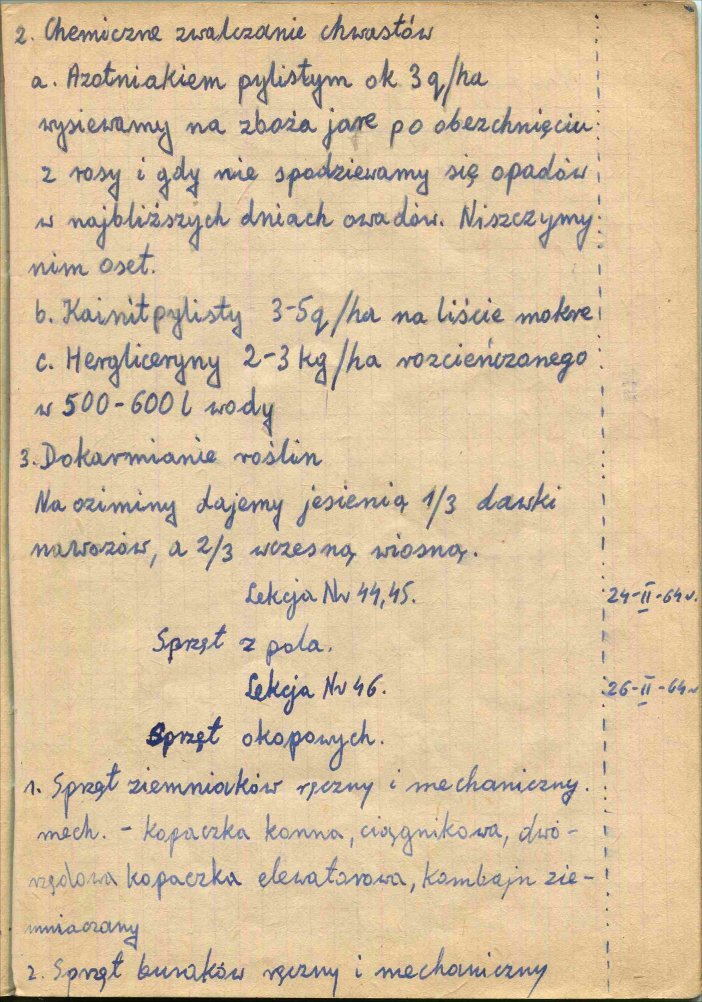 2. Chemiczne zwalczanie chwastów
a. Azotniakiem pylistym ok 3 q/ha
wysiewamy na zboża jare po obeschnięciu
z rosy i gdy nie spodziewamy się opadów
w najbliższych dniach owadów. Niszczymy
nim oset.
b. Kainit pylisty 3-5q/ha na liście mokre
c. Hergliceryny 2-3 kg/ha rozcieńczonego
w 500-600 l wody
3. Dokarmianie roślin
Na oziminy dajemy jesienią 1/3 dawki
nawozów, a 2/3 wczesną wiosną.
Lekcja Nr 44,45. 24-II-64r.
Sprzęt z pola.
Lekcja Nr 46. 26-II-64r
Sprzęt okopowych.
1. Sprzęt ziemniaków ręczny i mechaniczny.
mech. - kopaczka konna, ciągnikowa, dwó-
rzędowa kopaczka elewatorowa, kombajn zie-
mniaczany
2. Sprzęt buraków ręczny i mechaniczny